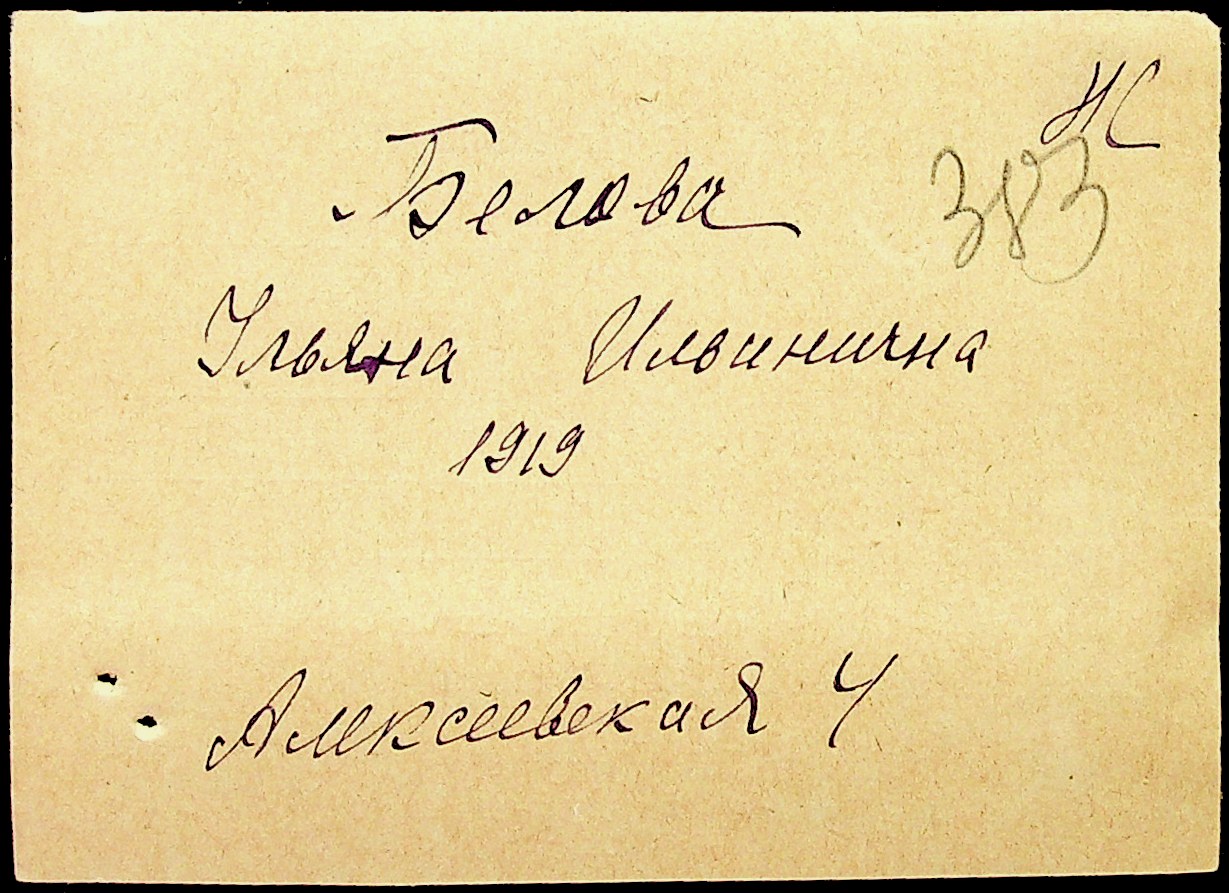 383
Белова
Ульяна Ильинична
1919
Алексеевская 4